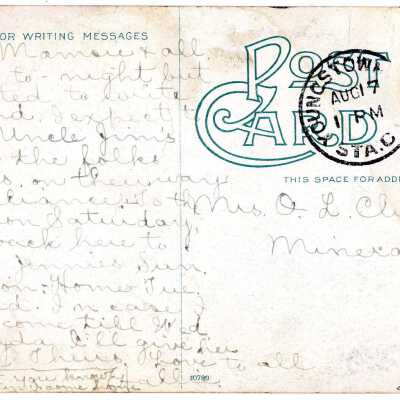 OR WRITING MESSAGES
Mamow & all
to night but
ted to write
Uncle Jim's
the folks
s. on their way
liance. to th
on Saturday
back here to
Jennies Sun.
on. Home Tue.
d. In case
come till Wed
I'll give her
Thurs. Love to all
you know
POST
CARD
YOUNGSTOWN
AUG 17
1 PM
STA. C
THIS SPACE FOR ADD
Mrs. O. L. Cl
Minera
10789